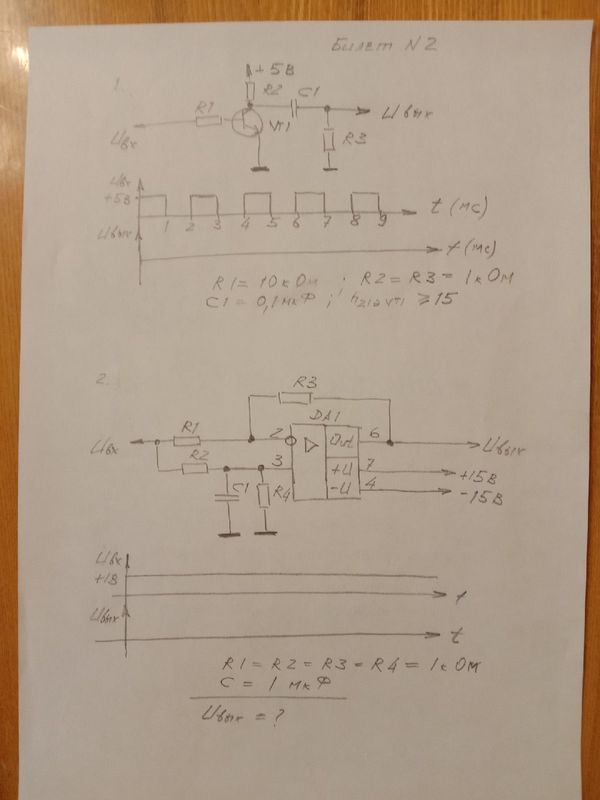 Билет N2
1.
+5В
R2
C1
Uвых
R1
VT1
R3
Uвх
Uвх
+5В
1 2 3 4 5 6 7 8 9
t (мс)
Uвых
t (мс)
R1 = 10 кОм ; R2 = R3 = 1 кОм
C1 = 0,1 мкФ ; h21э VT1 ≥ 15
2.
R3
DA1
R1
2
▷
Out
6
Uвх
Uвых
R2
3
+U
7
+15В
C1
R4
-U
4
-15В
Uвх
+1В
t
Uвых
t
R1 = R2 = R3 = R4 = 1 кОм
C = 1 мкФ
Uвых = ?